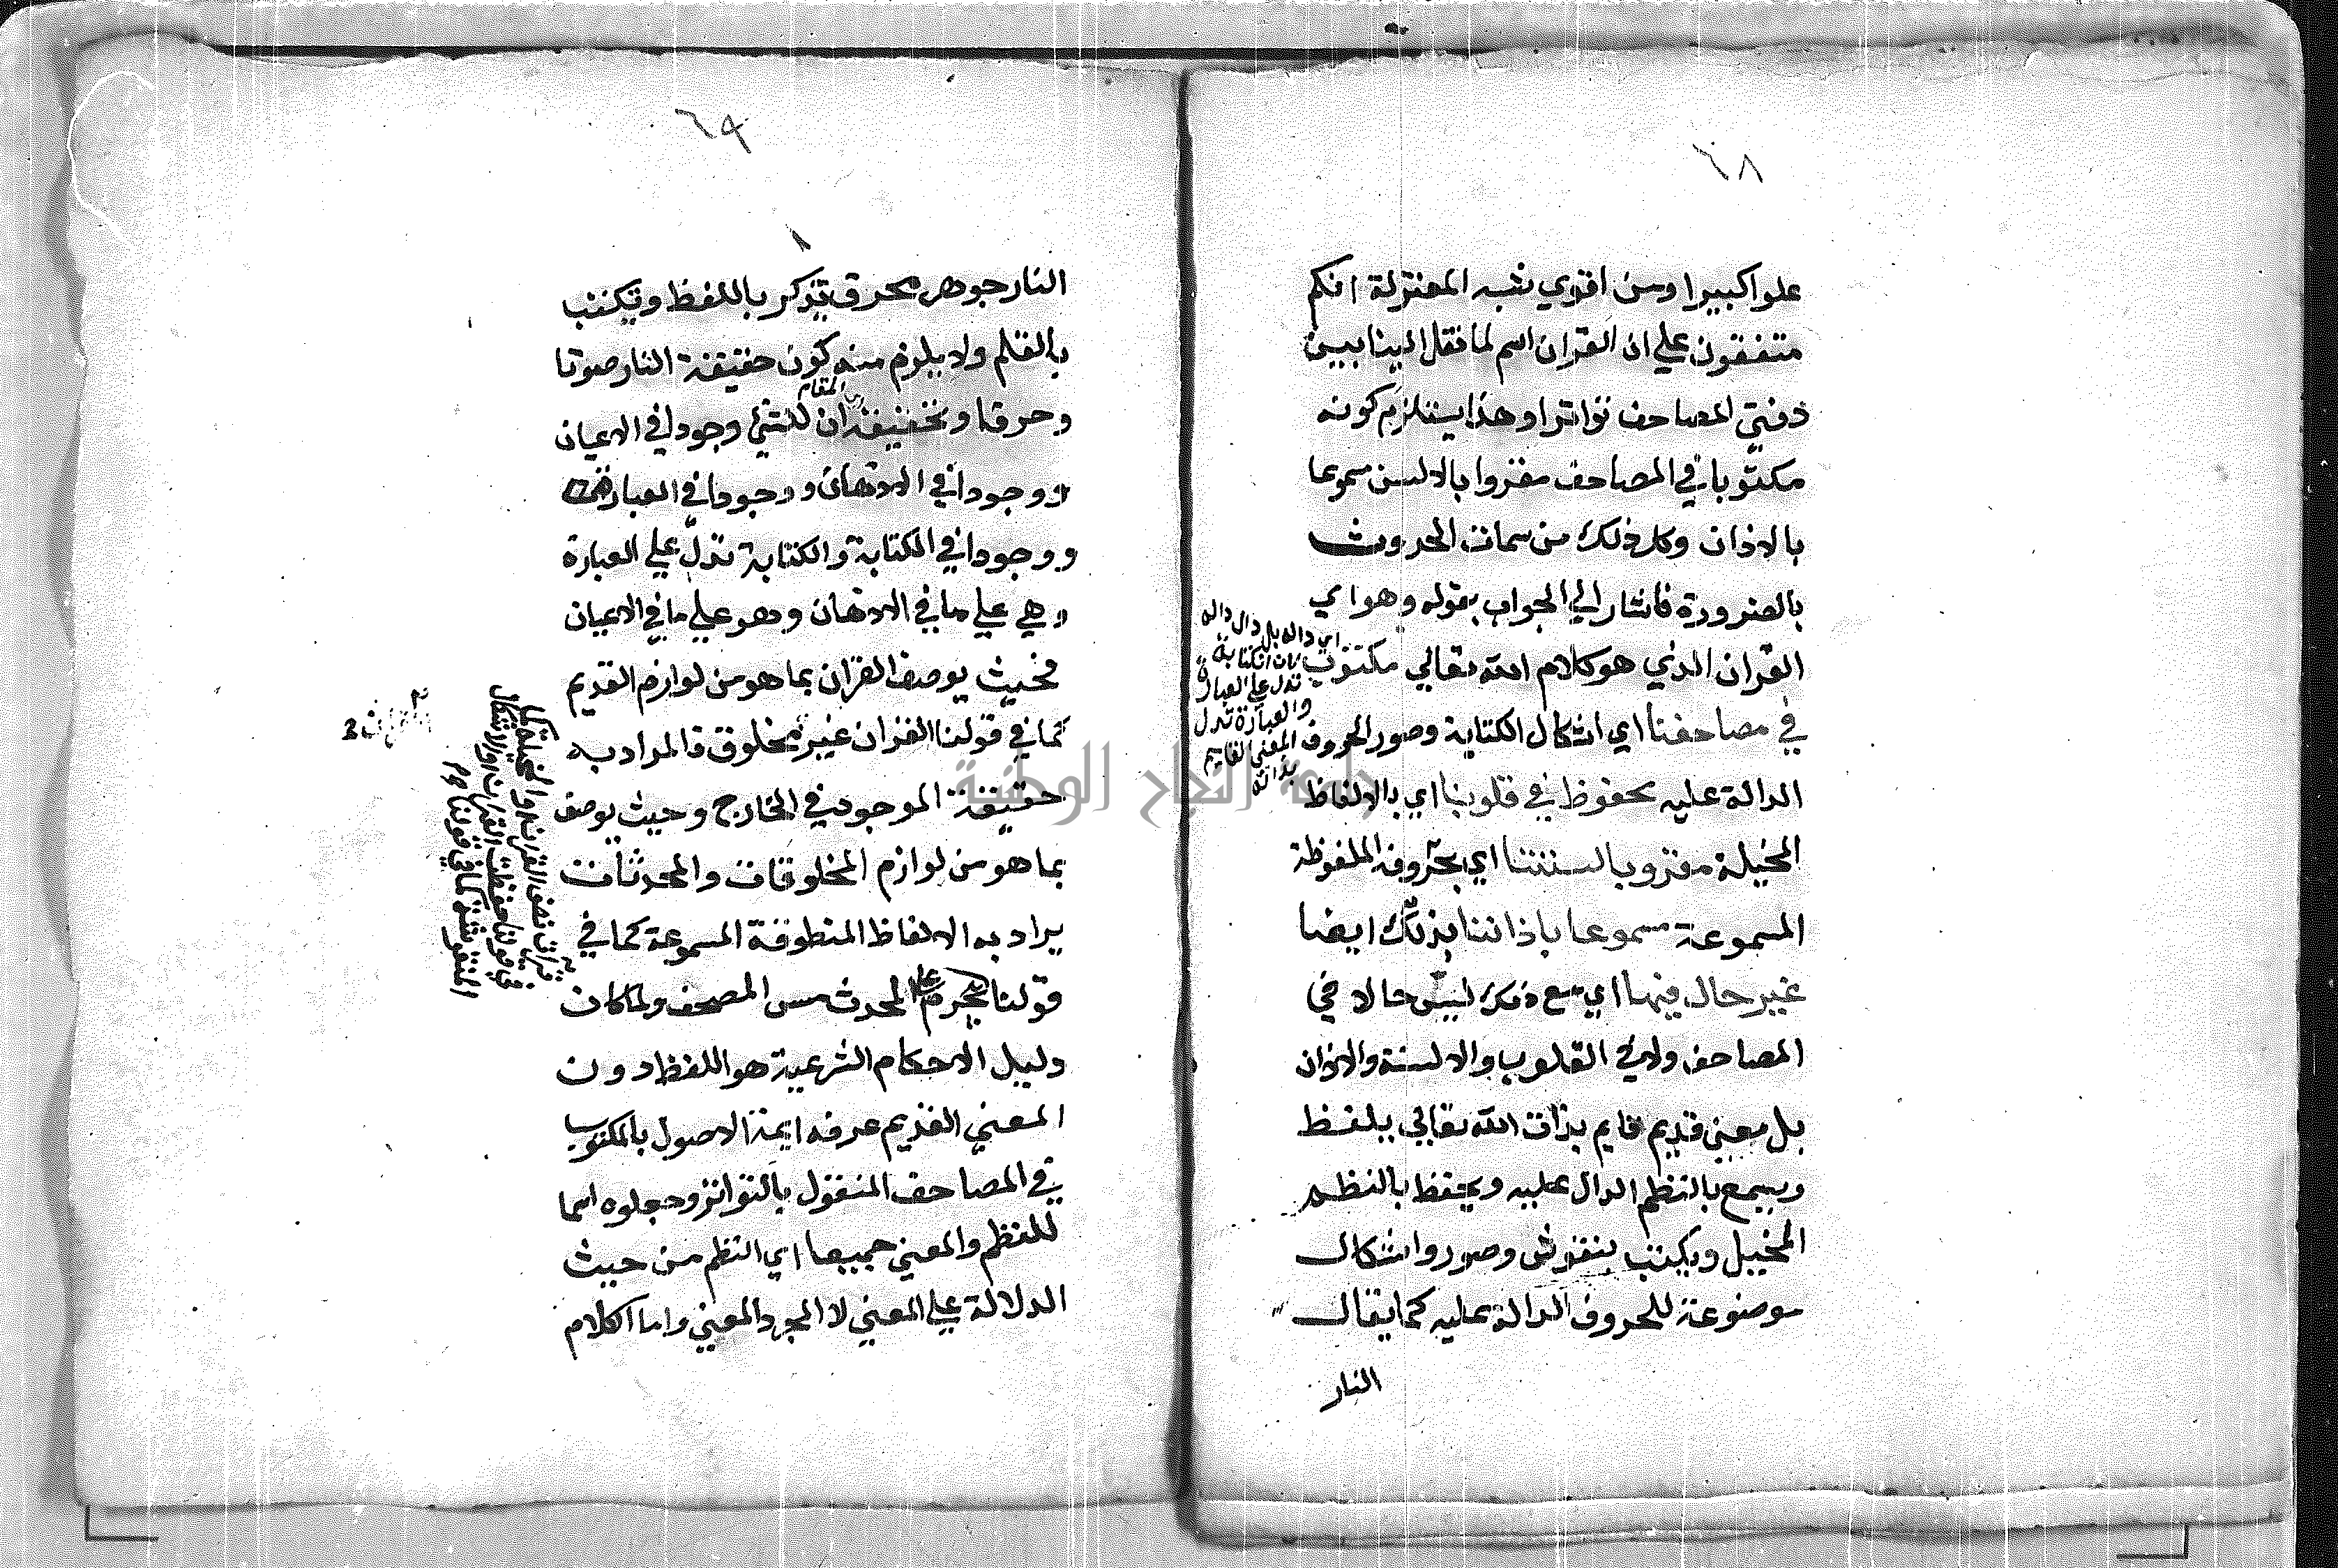 ٦٨
علوا كبيرا ومن اقوي شبه المعتزلة انكم
متفقون علي ان القران اسم لما نقل الينا بين
دفتي المصاحف تواترا وهذا يستلزم كونه
مكتوبا في المصاحف مقروا بالالسن مسموعا
بالاذان وكل ذلك من سمات الحدوث
بالضرورة فاشار الي الجواب بقوله وهو اي
القران الذي هو كلام الله تعالي مكتوب
في مصاحفنا اي اشكال الكتابة وصور الحروف
الدالة عليه محفوظ في قلوبنا اي بالالفاظ
المخيلة مقرو بالسنتنا اي بحروفه الملفوظة
المسموعة مسموعا باذاننا بذلك ايضا
غير حال فيها اي مع ذلك ليس حالا في
المصاحف ولا في القلوب والالسنة والاذان
بل معني قديم قايم بذات الله تعالي يلفظ
ويسمع بالنظم الدال عليه ويحفظ بالنظم
المخيل ويكتب بنقوش وصور واشكال
موضوعة للحروف الدالة عليه كما يقال
النار
اي داله بل دال داله
لان الكتابة
تدل علي العبارة
والعبارة تدل
المعني القايم
بذاته
جامعة النجاح الوطنية
٦٩
النار جوهر محرق تذكر باللفظ وتكتب
بالقلم ولا يلزم منه كون حقيقة النار صوتا
المقام
وحرفا وتحقيقه ان للشئ وجودا في الاعيان
ووجودا في الاذهان ووجودا في العبارة
ووجودا في الكتابة والكتابة تدل علي العبارة
وهي علي ما في الاذهان وهو علي ما في الاعيان
فحيث يوصف القران بما هو من لوازم القديم
كما في قولنا القران غير مخلوق فالمراد به
حقيقة الموجود في الخارج وحيث يوصف
بما هو من لوازم المخلوقات والمحدثات
يراد به الالفاظ المنطوقة المسموعة كما في
قولنا يحرم علي المحدث مس المصحف ولما كان
دليل الاحكام الشرعية هو اللفظ دون
المعني القديم عرفه ايمة الاصول بالمكتوب
في المصاحف المنقول بالتواتر وجعلوه اسما
للنظم والمعني جميعا اي النظم من حيث
الدلالة علي المعني لا المجرد المعني واما الكلام
قرات نصف القران او المخيلة كما
في قولنا حفظت القران او الاشكال
المنقوشة كما في قولنا